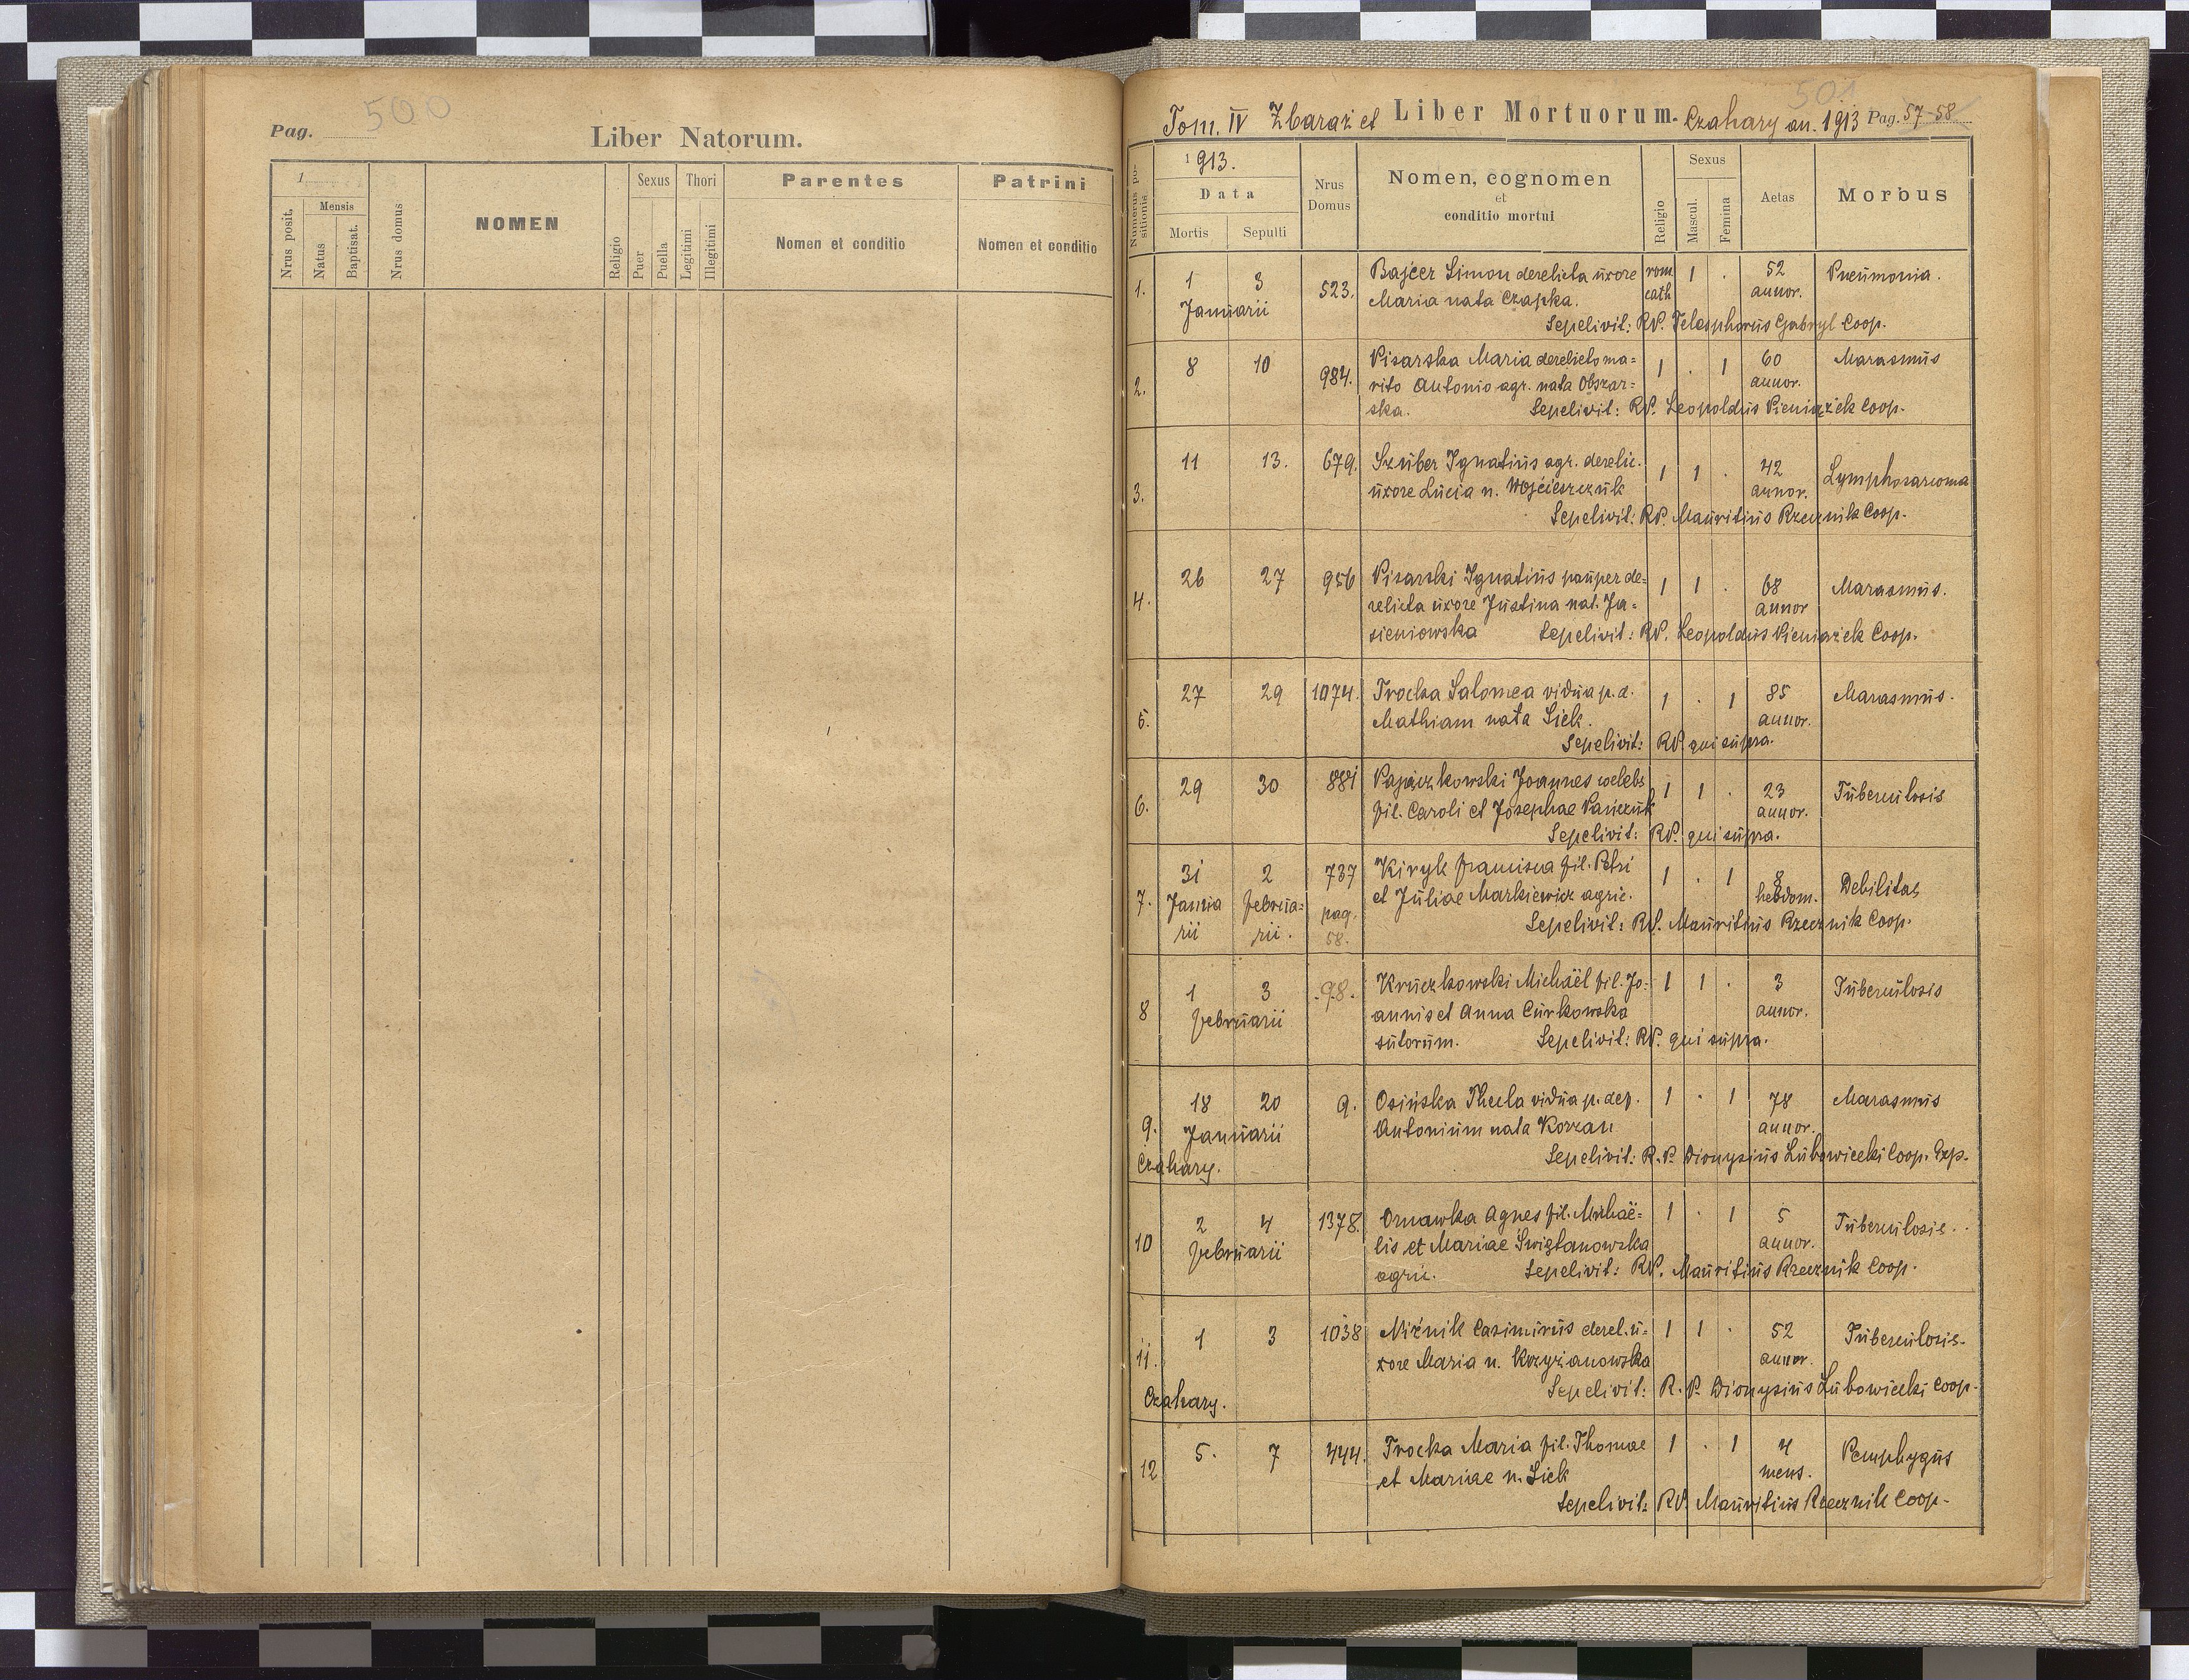 Pag. 500
Liber Natorum.
1
Nrus posit.
Mensis
Natus
Baptisat.
Nrus domus
NOMEN
Religio
Sexus
Puer
Puella
Thori
Legitimi
Illegitimi
Parentes
Nomen et conditio
Patrini
Nomen et conditio
501
Tom. IV Zbaraż et Liber Mortuorum. Czahary an. 1913 Pag. 57-58
Numerus positionis
1913.
Data
Mortis
Sepulti
Nrus Domus
Nomen, cognomen
et
conditio mortui
Religio
Sexus
Mascul.
Femina
Aetas
Morbus
1. 1 3 523. Bajcer Simon derelicta uxore rom 1 . 52 Pneumonia.
Januarii Maria nata Czapka. cath annor.
Sepelivit: RP. Telesphorus Gabryl Coop.
2. 8 10 984. Pisarska Maria derelicto ma= 1 . 1 60 Marasmus
rito Antonio agr. nata Obszar= annor.
ska. Sepelivit: RP. Leopoldus Pieniążek Coop.
3. 11 13. 679. Szuber Ignatius agr. derelic. 1 1 . 42 Lymphosarcoma
uxore Lucia n. Wojcieszczuk annor.
Sepelivit: RP. Mauritius Rzecznik Coop.
4. 26 27 956 Pisarski Ignatius pauper de= 1 1 . 68 Marasmus.
relicta uxore Justina nat. Ja= annor
sieniowska Sepelivit: RP. Leopoldus Pieniążek Coop.
5. 27 29 1074. Trocka Salomea vidua p. d. 1 . 1 85 Marasmus.
Mathiam nata Sick. annor.
Sepelivit: RP. qui supra.
6. 29 30 881 Pajączkowski Joannes coelebs 1 1 . 23 Tuberculosis
fil. Caroli et Josephae Panczuk annor.
Sepelivit: RP. qui supra.
7. 31 2 737 Kiryk Francisca fil. Petri 1 . 1 8 Debilitas
Janua Februa= pag. et Juliae Markiewicz agric. hebdom.
rii rii. 58. Sepelivit: RP. Mauritius Rzecznik Coop.
8 1 3 .98. Kruczkowski Michaël fil. Jo= 1 1 . 3 Tuberculosis
Februarii annis et Anna Curkowska annor.
sutorum. Sepelivit: RP. qui supra.
9. 18 20 9. Osińska Thecla vidua p. def. 1 . 1 78 Marasmus
Januarii Antonium nata Korzan annor.
Czahary. Sepelivit: R.P. Dionysius Lubowiecki Coop. Exp.
10 2 4 1378. Omawka Agnes fil. Michaë= 1 . 1 5 Tuberculosis.
Februarii lis et Mariae Świgtanowska annor.
agric. Sepelivit: RP. Mauritius Rzecznik Coop.
11. 1 3 1038 Niżnik Casimirus derel. u= 1 1 . 52 Tuberculosis.
xore Maria n. Krzyżanowska annor.
Czahary. Sepelivit: R.P. Dionysius Lubowiecki Coop.
12 5. 7 444. Trocka Maria fil. Thomae 1 . 1 4 Pemphygus
et Mariae n. Sick mens.
Sepelivit: RP. Mauritius Rzecznik Coop.